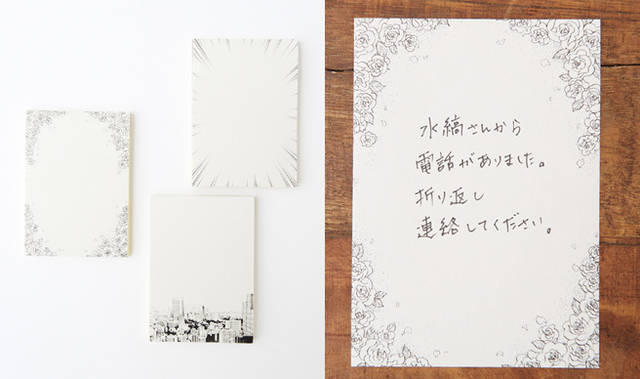 水縞さんから
電話がありました。
折り返し
連絡してください。